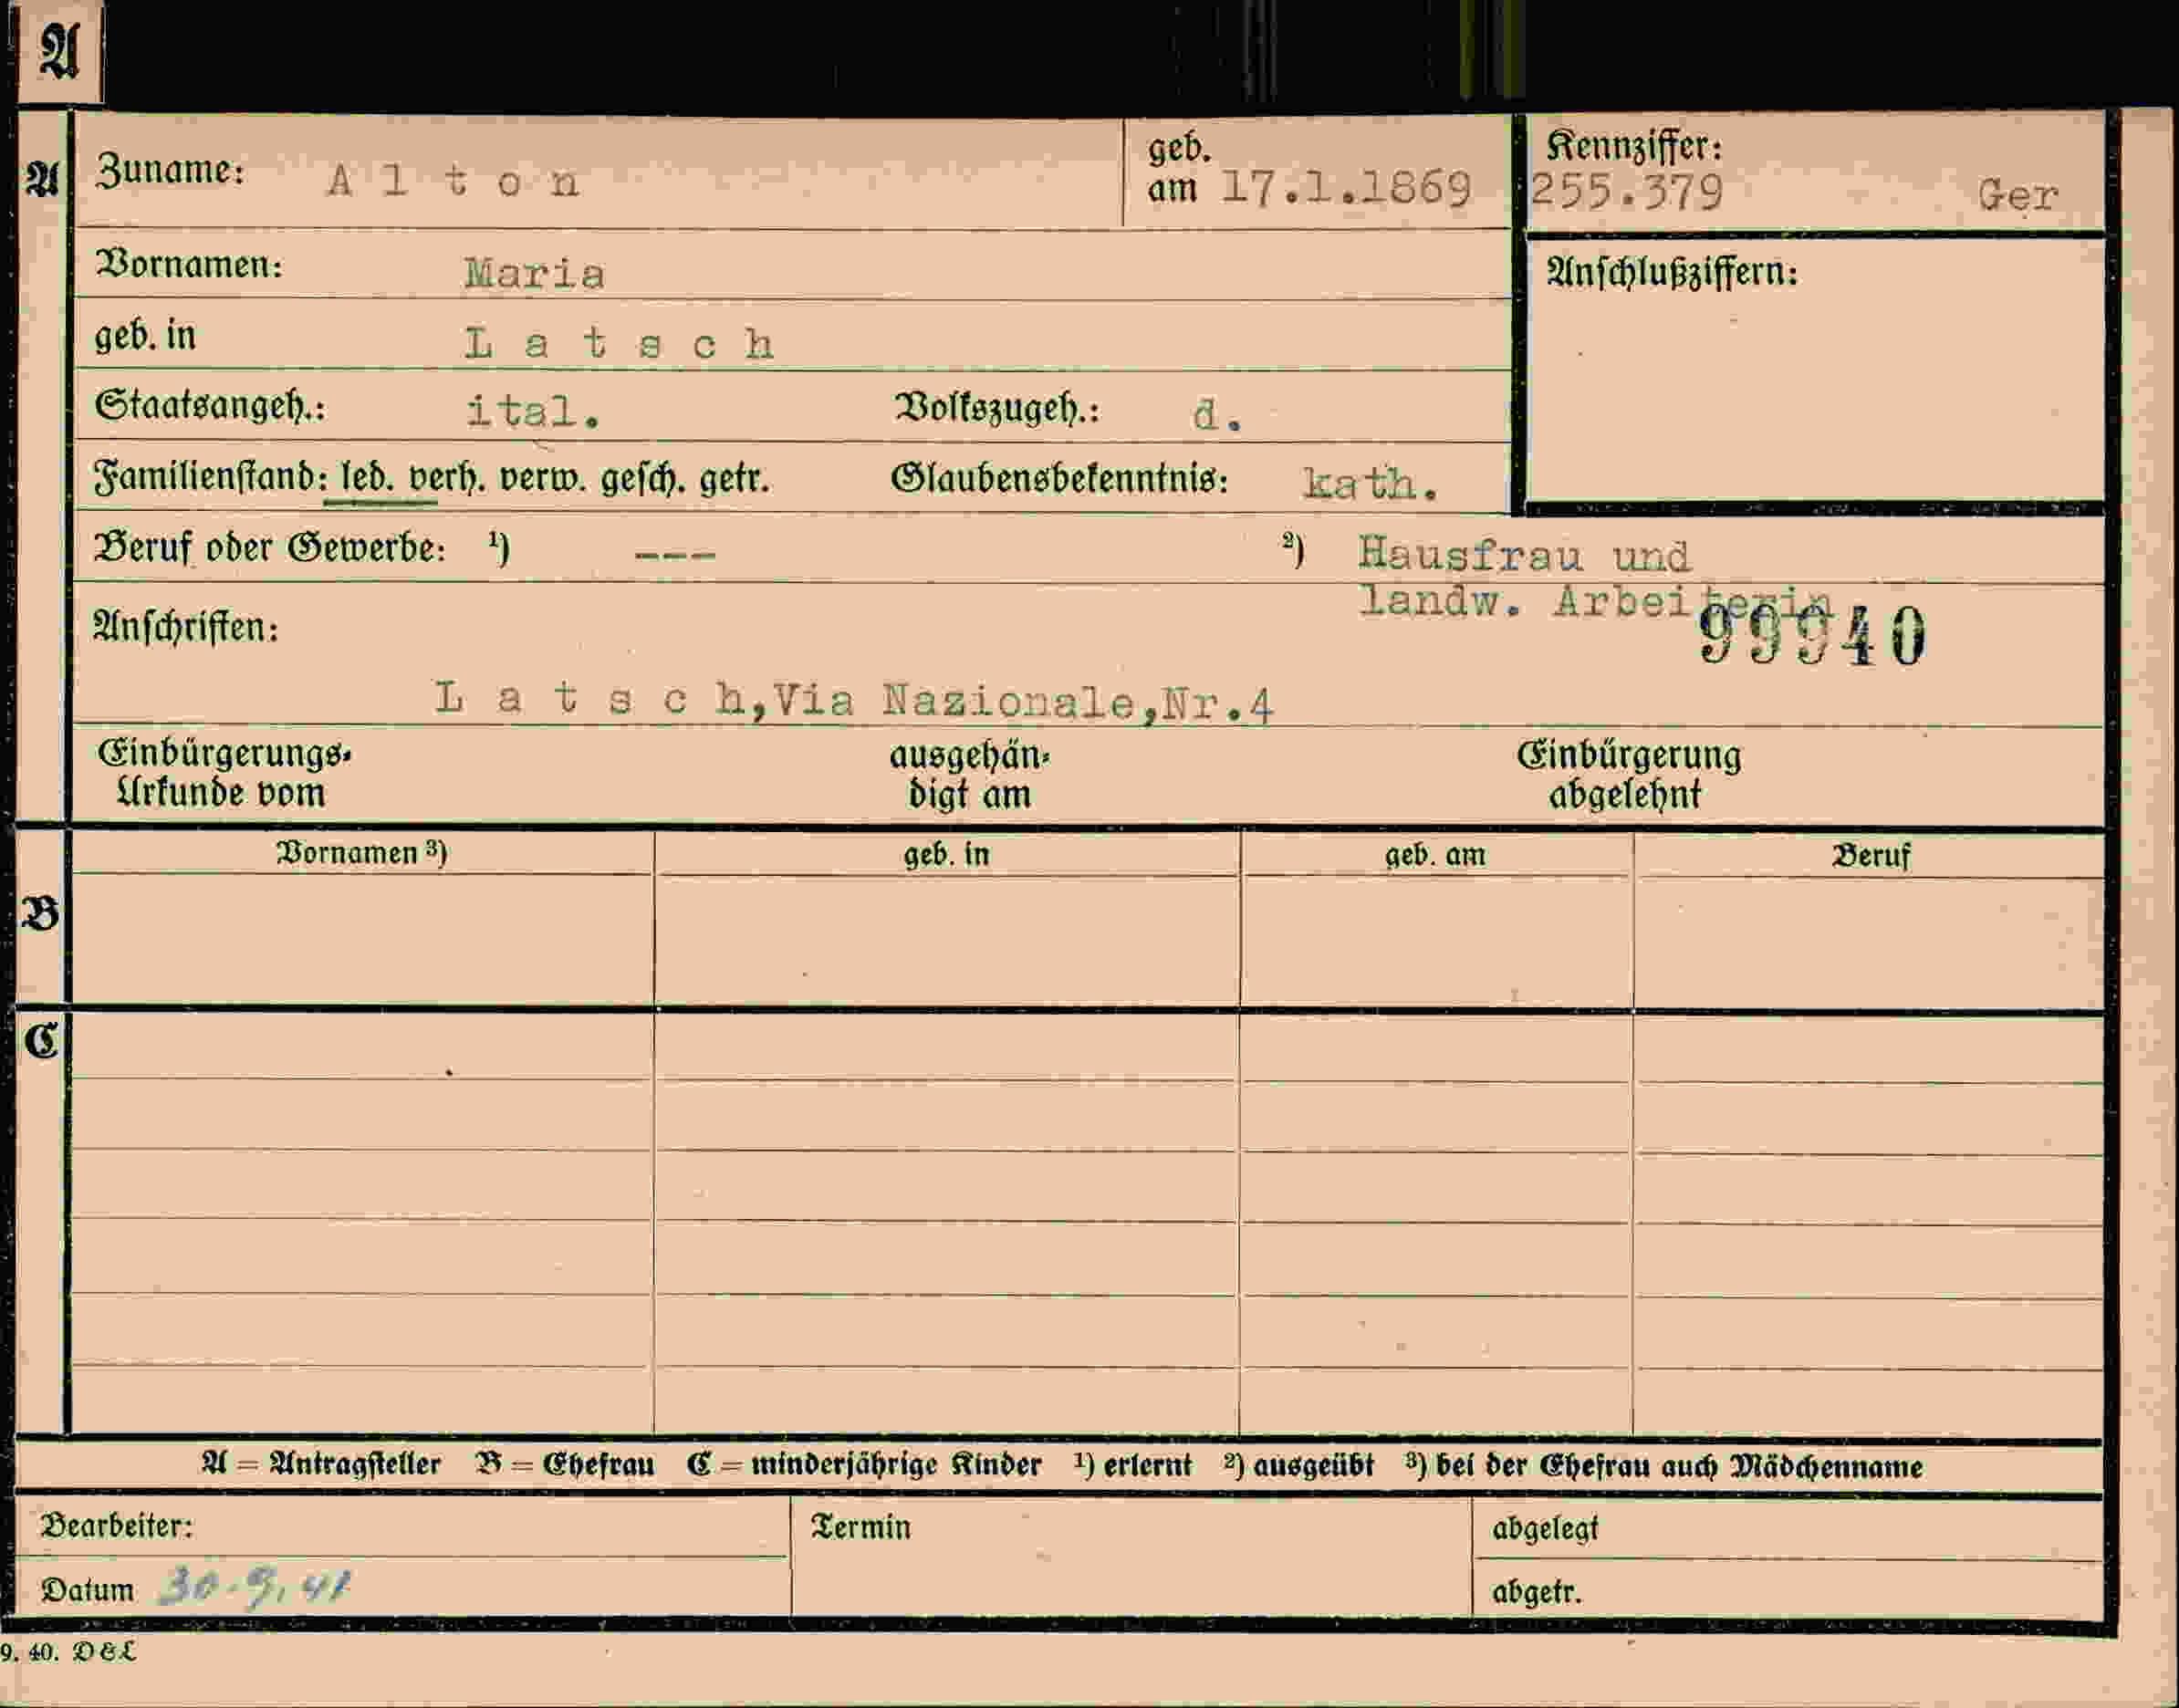 A
A
Zuname: A l t o n
geb. am 17.1.1869
Kennziffer:
255.379 Ger
Vornamen: Maria
Anschlußziffern:
geb. in L a t s c h
Staatsangeh.: ital. Volkszugeh.: d.
Familienstand: led. verh. verw. gesch. getr. Glaubensbekenntnis: kath.
Beruf oder Gewerbe: ¹) --- ²) Hausfrau und
landw. Arbeiterin
Anschriften:
99940
L a t s c h,Via Nazionale,Nr.4
Einbürgerungs-
Urkunde vom
ausgehän-
digt am
Einbürgerung
abgelehnt
B
Vornamen ³) geb. in geb. am Beruf
C
A = Antragsteller B = Ehefrau C = minderjährige Kinder ¹) erlernt ²) ausgeübt ³) bei der Ehefrau auch Mädchenname
Bearbeiter: Termin abgelegt
Datum 30.9.41 abgetr.
9. 40. D&L